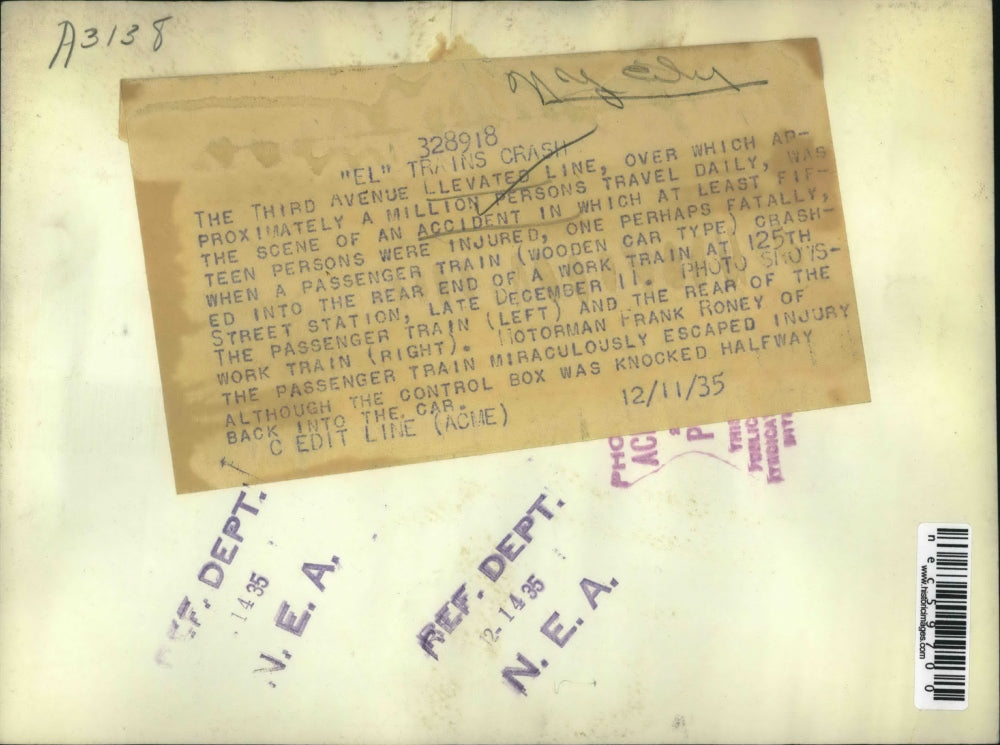 A3138
N Y City
328918
"EL" TRAINS CRASH
THE THIRD AVENUE LLEVATED LINE, OVER WHICH AP-
PROXIMATELY A MILLION PERSONS TRAVEL DAILY, WAS
THE SCENE OF AN ACCIDENT IN WHICH AT LEAST FIF-
TEEN PERSONS WERE INJURED, ONE PERHAPS FATALLY,
WHEN A PASSENGER TRAIN (WOODEN CAR TYPE) CRASH-
ED INTO THE REAR END OF A WORK TRAIN AT 125TH
STREET STATION, LATE DECEMBER 11. PHOTO SHOWS-
THE PASSENGER TRAIN (LEFT) AND THE REAR OF THE
WORK TRAIN (RIGHT). MOTORMAN FRANK RONEY OF
THE PASSENGER TRAIN MIRACULOUSLY ESCAPED INJURY
ALTHOUGH THE CONTROL BOX WAS KNOCKED HALFWAY
BACK INTO THE CAR.
C EDIT LINE (ACME) 12/11/35
PHO
AC
P
REF. DEPT.
14 35
N. E. A.
REF. DEPT.
12-14 35
N. E. A.
www.historicimages.com